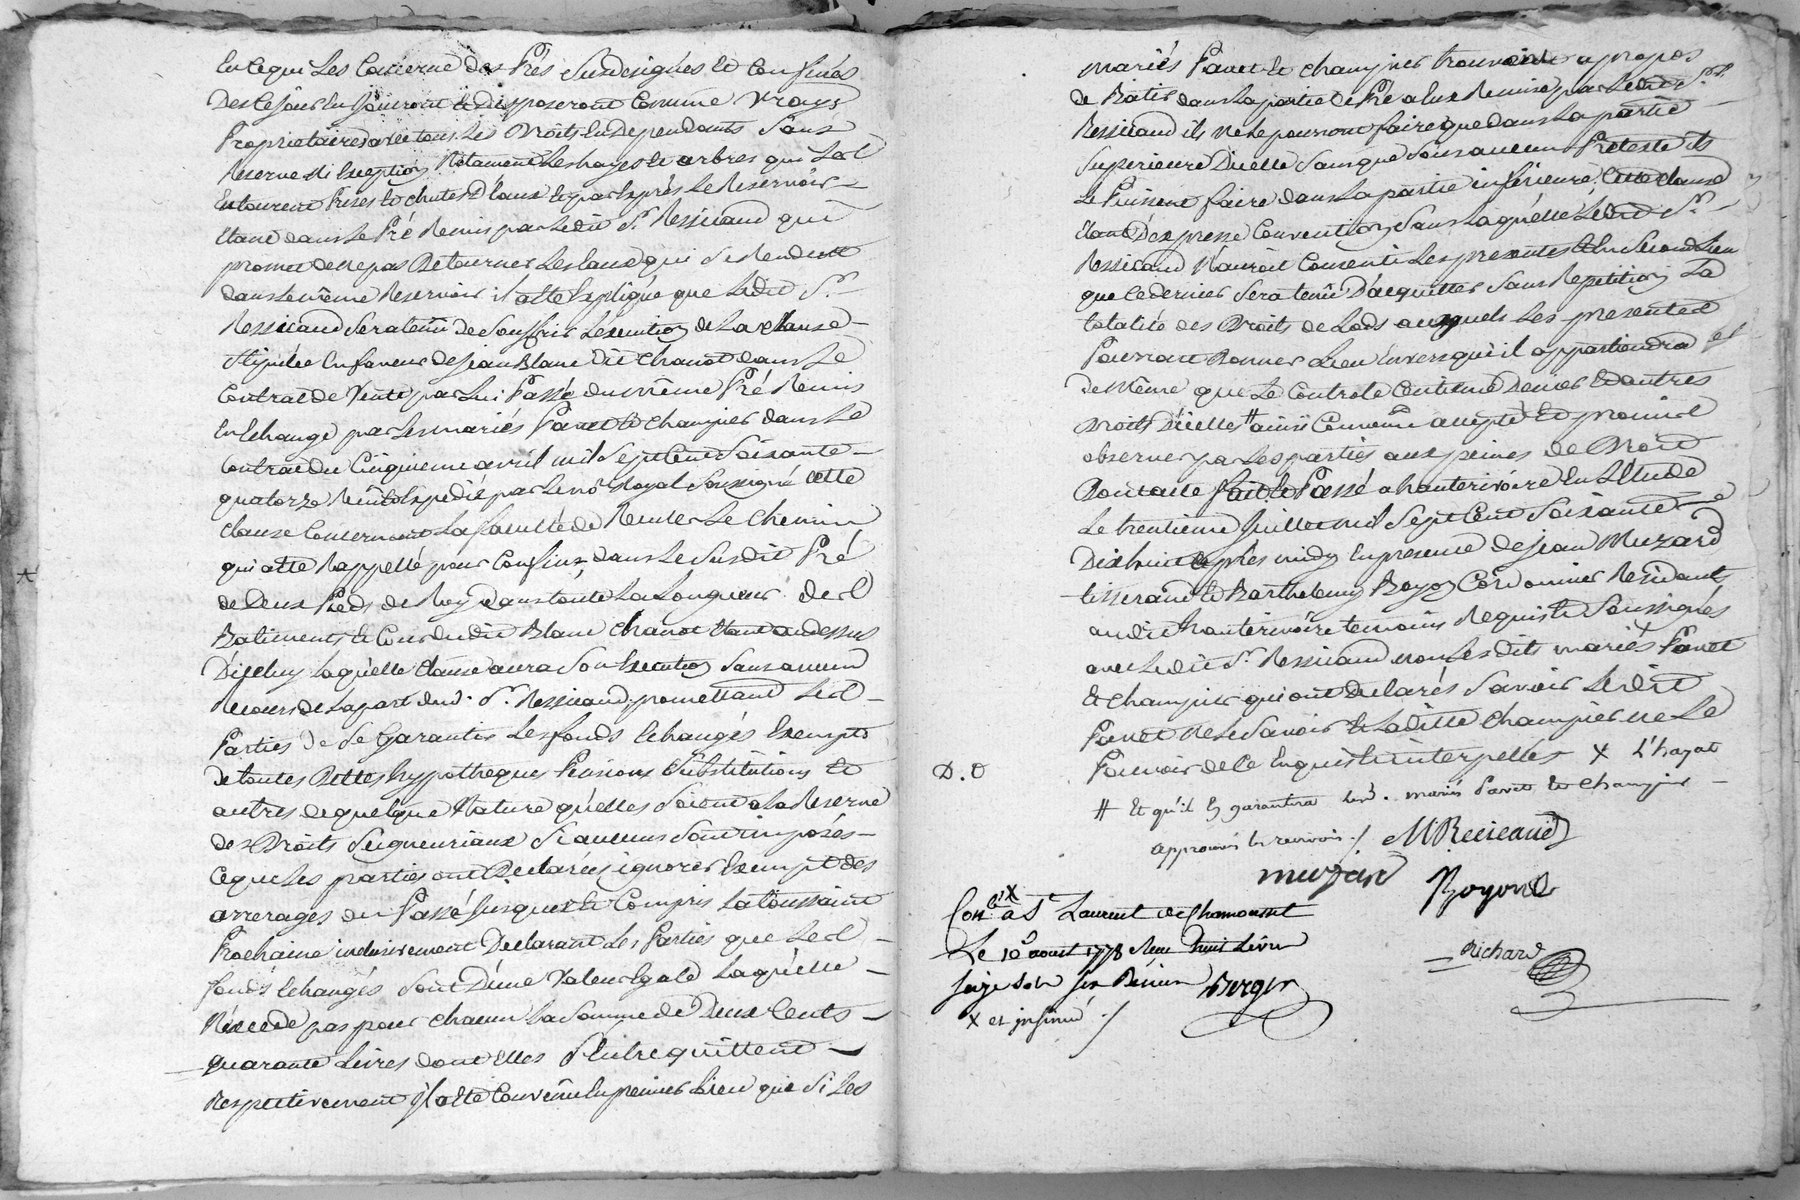 En ce qui les concerne des Prés susdesignés et confinés
Des ce jour en jouiront et disposeront comme vrays
Proprietaires avec tous les Droits en dependants sans
Reserve ni Exception Notament les hayes et arbres qui les
Entourent Prises et chutes D'eaux et par Exprès le Reservoir
étant dans le Pré Remis par ledit Sr. Ressicaud qui
promet de ne pas Detourner les Eaux qui se Rendent
dans le même Reservoir il a été Expliqué que ledit Sr.
Ressicaud sera tenu de souffrir l'execution de la clause
stipulée en faveur de jean Blanc dit chanot dans le
Contrat de Vente par lui Passé du même Pré Remis
en Echange par les mariés Panet et champier dans le
contrat du cinquieme avril mil sept Cent soixante
quatorze Reçu et Expedié par le no.re Royal soussigné cette
clause concernant la faculté de Reculer le chemin
qui a été Rappellé pour confins dans le susdit Pré
de Deux Pieds de Roy dans toute la Longueur des
Batiments et Cour dudit Blanc chanot étant au dessus
D'icelluy laquelle clause aura son Execution sans aucun
Recours de la part dud. Sr. Ressicaud, promettant les
Parties de se garantir les fonds Echangés Exempts
de toutes Dettes hypotheques Pensions Substitutions et
autres de quelque Nature qu'elles soient a la Reserve
des Droits seigneuriaux si aucuns sont imposés
ce que les parties ont Declarés ignorer Exempt des
arrerages du Passé jusques et Compris la toussaint
Prochaine inclusivement Declarant les Parties que les
fonds Echangés sont D'une Valeur Egale laquelle
N'excede pas pour chacun la somme de Deux Cents
quarante Livres dont elles s'entrequittent
Respectivement il a été Convenu en premier Lieu que si les
mariés Panet et champier trouvoient a propos
de Batir dans la partie de Pré a Eux Remise par ledit Sr.
Ressicaud ils ne le pourront faire que dans la partie
superieure D'icelle sans que sous aucun Pretexte ils
le Puissent faire dans la partie inferieure cette clause
étant D'expresse Convention sans laquelle ledit Sr.
Ressicaud N'auroit Consenti les presentes et en second Lieu
que ce dernier sera tenu D'acquitter sans Repetition la
totalité des Droits de Lods auxquels les presentes
Pourront Donner Lieu Envers qui il appartiendra et
de Même que le Controle Centieme Denier et autres
Droits D'icelles # ainsi Convenu accepté et promis
observer par les parties aux peines de Droit
Dont acte fait et Passé a hauterivoire en l'Etude
Le trentieme juillet mil sept Cent soixante
Dix huit après midy en presence de jean Muzard
tisserand et Barthelemy Boyon Cordonnier Residants
audit hauterivoire temoins Requis et soussignés
avec ledit Sr. Ressicaud non lesdits mariés Panet
et champier qui ont Declarés savoir ledit
Panet ne le savoir et ladite champier ne le
Pouvoir de ce Enquis et interpellés X L'hayat
D. O
# Et qu'il en garantira lesd. mariés Panet et Champier
approuvé les renvois ./. MRessicaud
muzard Boyond
Con.lé X a St Laurent de Chamousset
Le 10 aoust 1778 Reçu huit Livres
seize sols six Deniers Berger
X et insinué ./
Richard